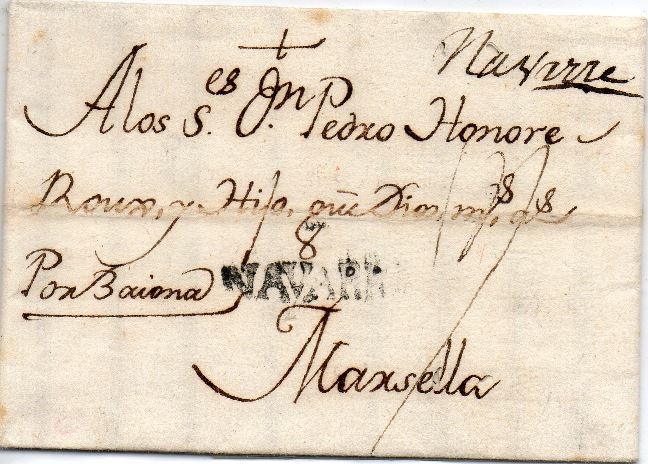 Navirre
†
A los S.es Jn Pedro Honore
Roux, y Hijo, que Dios m.s a.s
8
Por Baiona
NAVARR
Marsella